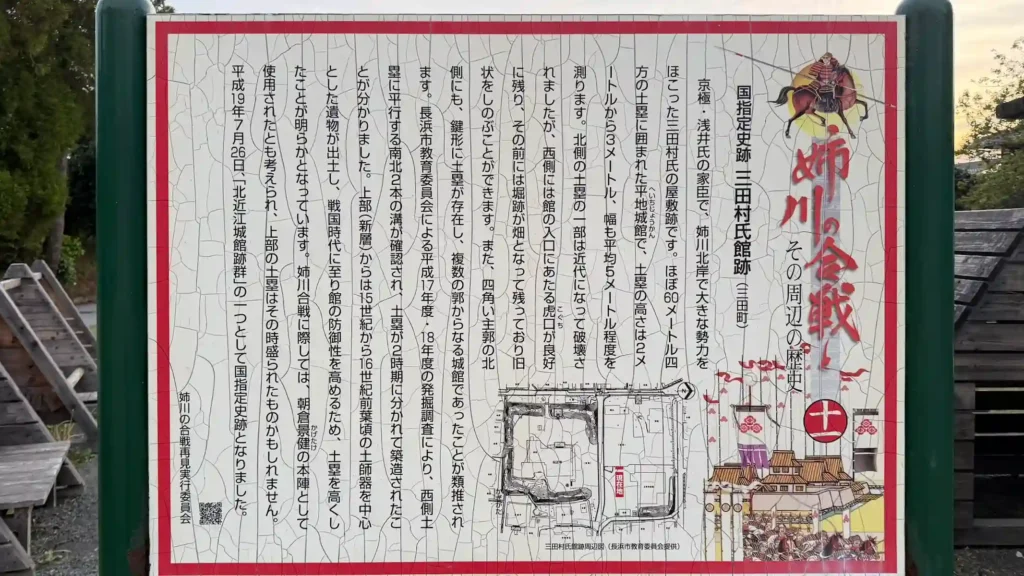 姉川の合戦と
その周辺の歴史
十一
国指定史跡 三田村氏館跡(三田町)
京極・浅井氏の家臣で、姉川北岸で大きな勢力を
ほこった三田村氏の屋敷跡です。ほぼ60メートル四
方の土塁に囲まれた平地城館で、土塁の高さは2メ
へいちじょうかん
ートルから3メートル、幅も平均5メートル程度を
測ります。北側の土塁の一部は近代になって破壊さ
れましたが、西側には館の入口にあたる虎口が良好
こぐち
に残り、その前には堀跡が畑となって残っており旧
状をしのぶことができます。また、四角い主郭の北
側にも、鍵形に土塁が存在し、複数の郭からなる城館であったことが類推され
ます。長浜市教育委員会による平成17年度・18年度の発掘調査により、西側土
塁に平行する南北2本の溝が確認され、土塁が2時期に分かれて築造されたこ
とが分かりました。上部(新層)からは15世紀から16世紀前葉頃の土師器を中心
とした遺物が出土し、戦国時代に至り館の防御性を高めるため、土塁を高くし
たことが明らかとなっています。姉川合戦に際しては、朝倉景健の本陣として
かげたけ
使用されたとも考えられ、上部の土塁はその時盛られたものかもしれません。
平成19年7月26日、「北近江城館跡群」の一つとして国指定史跡となりました。
姉川の合戦再見実行委員会
現在地
三田村氏館跡周辺図(長浜市教育委員会提供)